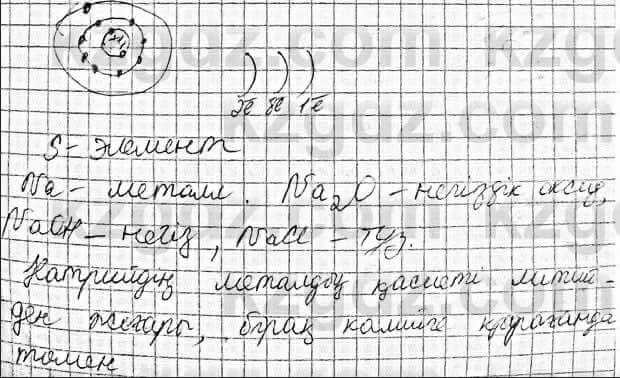 kzgaz.com kzgaz.com
+11
) ) )
2ē 8ē 1ē
S - элемент
Na - металл. Na₂O - негіздік оксид,
NaOH - негіз, NaCl - тұз.
Натрийдің металдық қасиеті литий-
ден жоғары, бірақ калийге қарағанда
төмен